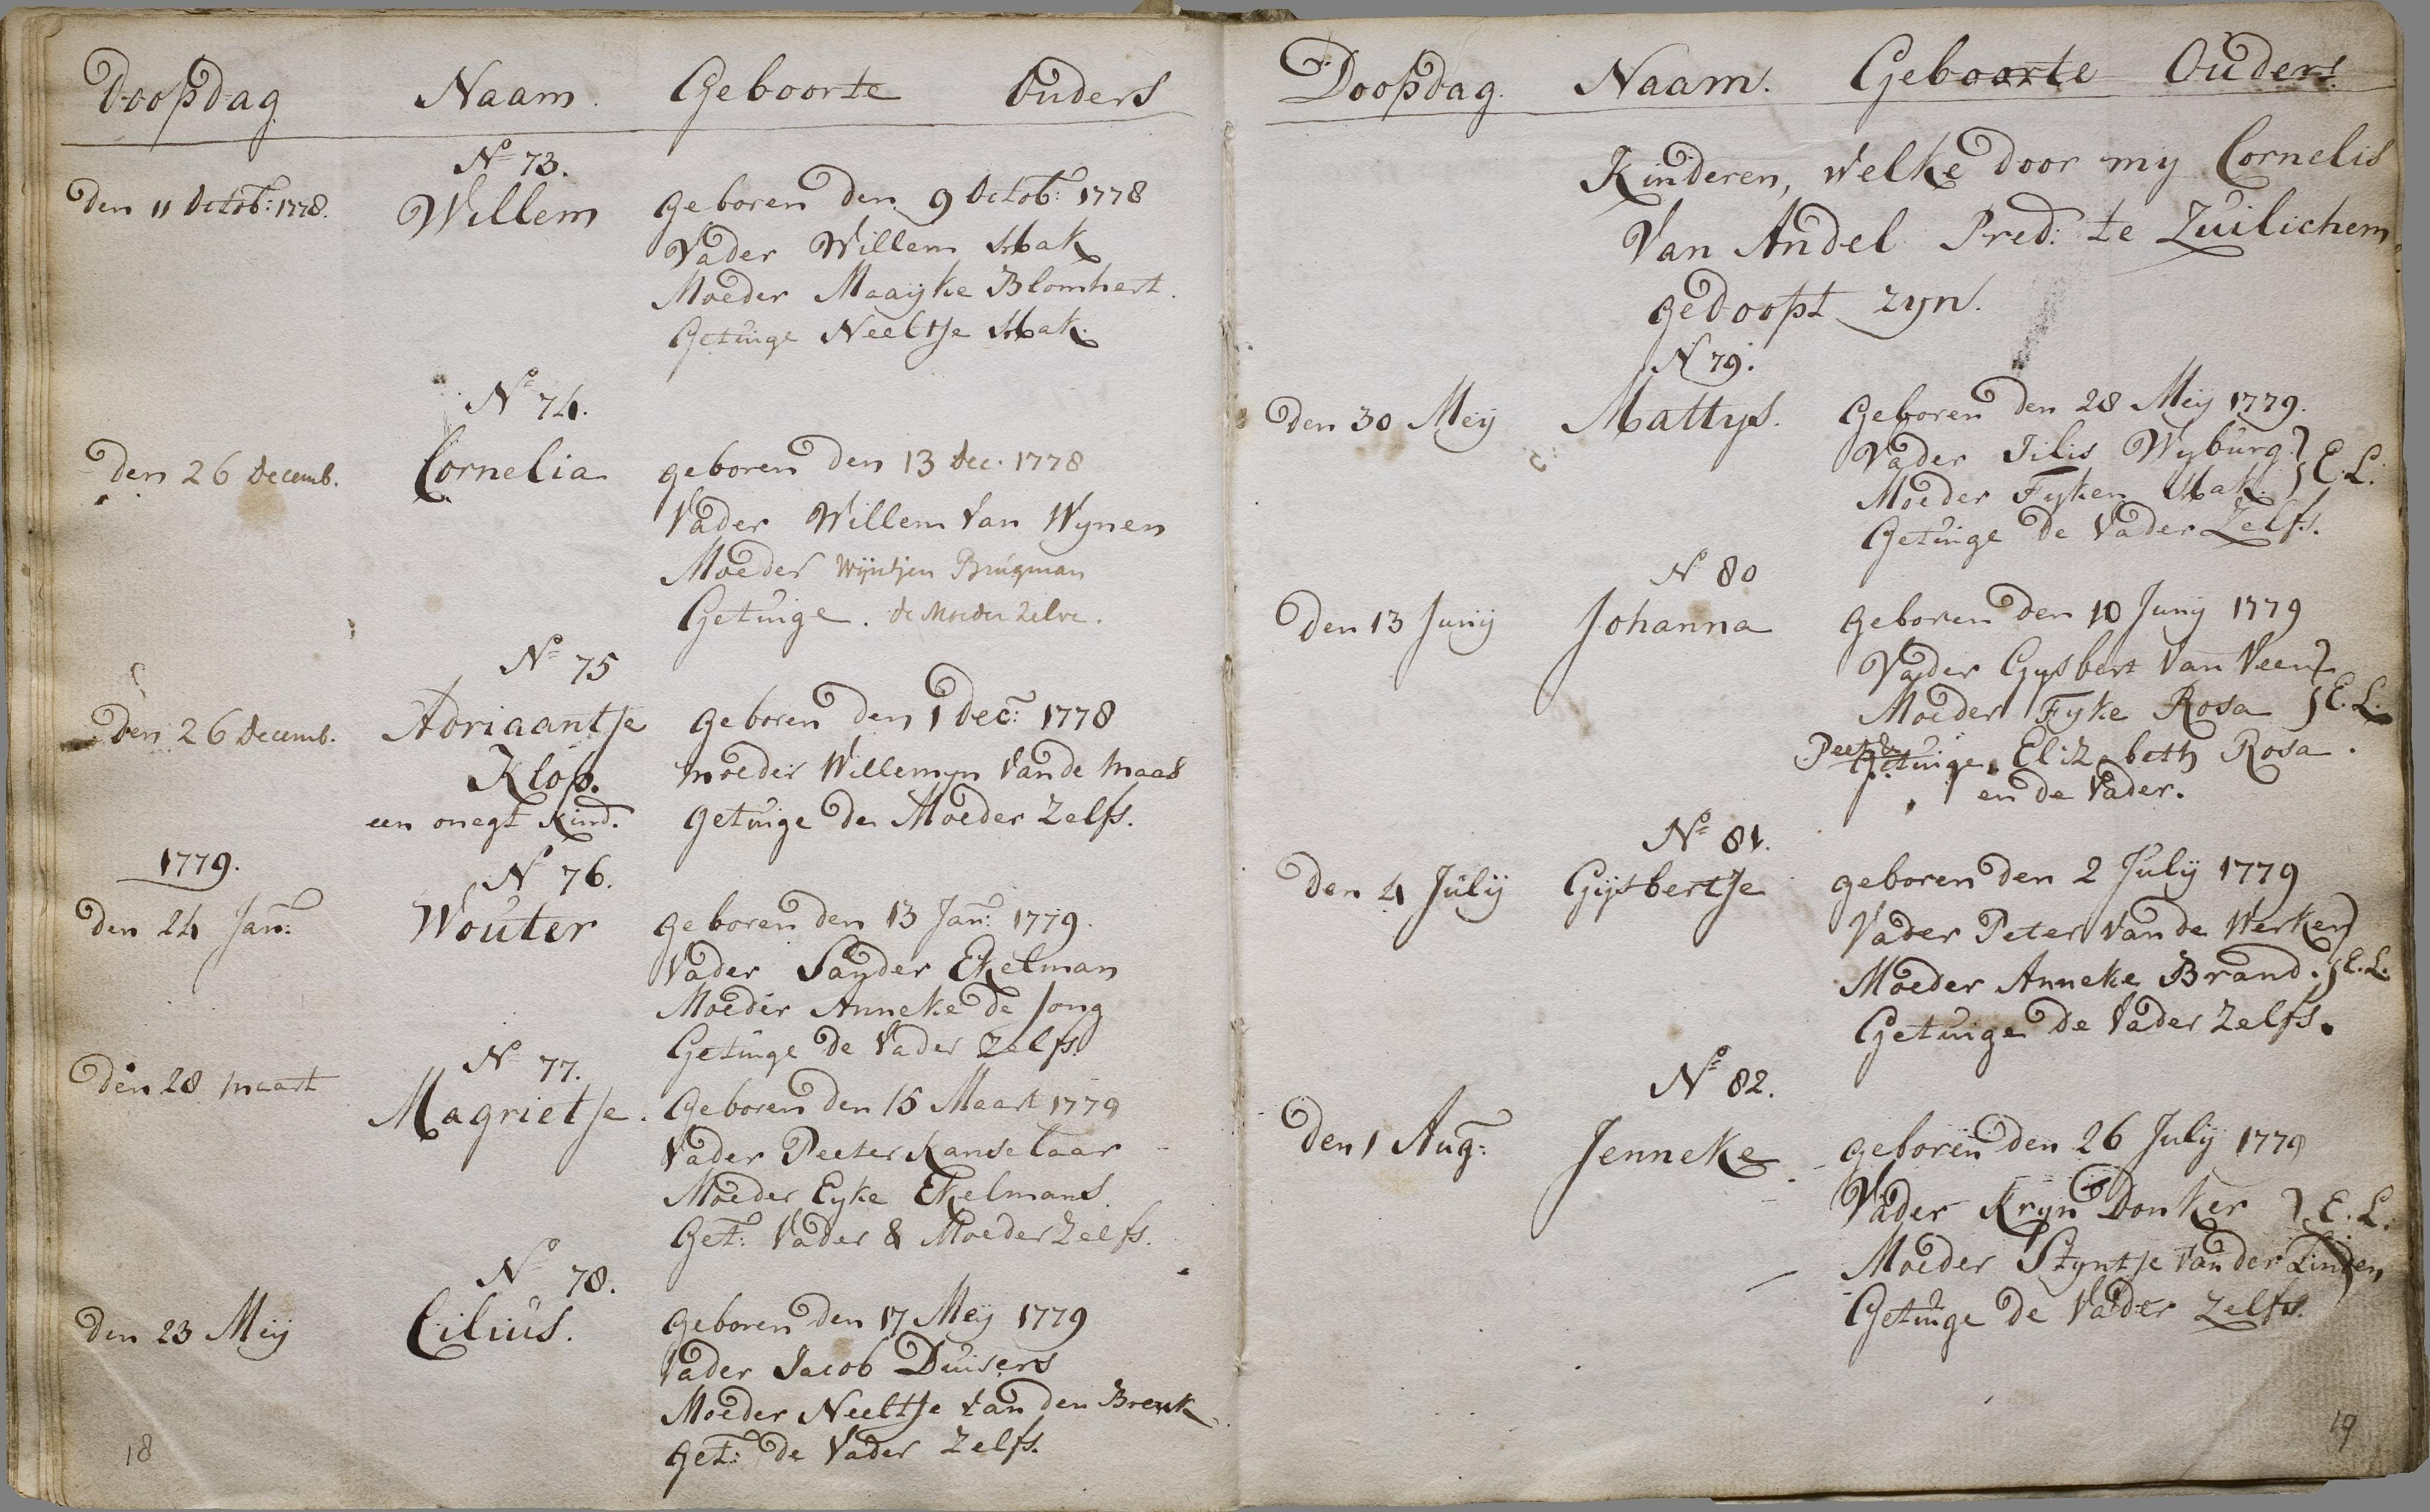 Doopdag Naam. Geboorte Ouders
No 73.
Den 11 Octob: 1778. Willem geboren den 9 Octob: 1778
Vader Willem Mak
Moeder Maayke Blomhert.
Getuige Neeltje Mak.
No 74.
Den 26 Decemb. Cornelia geboren den 13 Dec. 1778
Vader Willem Van Wynen
Moeder Wijntjen Brugman
Getuige. de Moeder Zelve.
No 75
Den 26 Decemb. Adriaantje geboren den 1 Dec: 1778
Klop. moeder Willemyn Van de Maas
een onegt Kind. getuige de Moeder Zelfs.
1779.
No 76.
Den 24 Jan: Wouter geboren den 13 Jan: 1779.
Vader Sander Ekelman
Moeder Anneke de Jong
Getuige de Vader Zelfs.
No 77.
Den 28 maart Magrietje. Geboren den 15 Maart 1779
Vader Peeter Kanselaar
Moeder Eyke Ekelmans.
Get: Vader & Moeder Zelfs.
No 78.
Den 23 Meij Cilius. Geboren den 17 Meij 1779
Vader Jacob Duisers
Moeder Neeltje Van den Breuk
Get: de Vader Zelfs.
18
Doopdag. Naam. Geboorte Ouders.
Kinderen, welke door my Cornelis
Van Andel Pred: te Zuilichem,
gedoopt zyn.
No 79.
Den 30 Meij Mattys. Geboren den 28 Meij 1779.
Vader Jilis Wyburg
Moeder Fyken Mak. } E.L.
Getuige de Vader Zelfs.
No 80
Den 13 Junij Johanna geboren den 10 Junij 1779
Vader Gysbert Van Veen
Moeder Fyke Rosa } E.L.
Getuige Elizabeth Rosa.
en de Vader.
No 81.
Den 4 Julij Gijsbertje geboren den 2 Julij 1779
Vader Peter Van de Werken
Moeder Anneke Brand. } E.L.
Getuige de Vader Zelfs.
No 82.
Den 1 Aug: Jenneke geboren den 26 Julij 1779
Vader Kryn Donker } E.L.
Moeder Styntje Van der Linden
Getuige de Vader Zelfs.
19